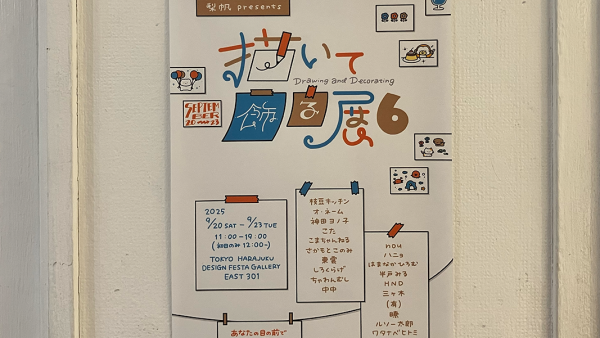 梨帆 presents
描いて
Drawing and Decorating
飾る展6
SEPTEM
BER
20 23
2025
9/20 SAT – 9/23 TUE
11:00–19:00
(初日のみ 12:00~)
TOKYO HARAJUKU
DESIGN FESTA GALLERY
EAST 301
枝豆キッチン
オ・ネーム
神田ヨノ子
こた
こまちゃんねる
さかもとこのみ
東雲
しろくらげ
ちゃわんむし
中中
nou
ハニョ
はまなかひろむ
半戸みる
HND
三ヶ木
(有)
瞭
ルソー太郎
ワタナベヒトミ
あなたの目の前で